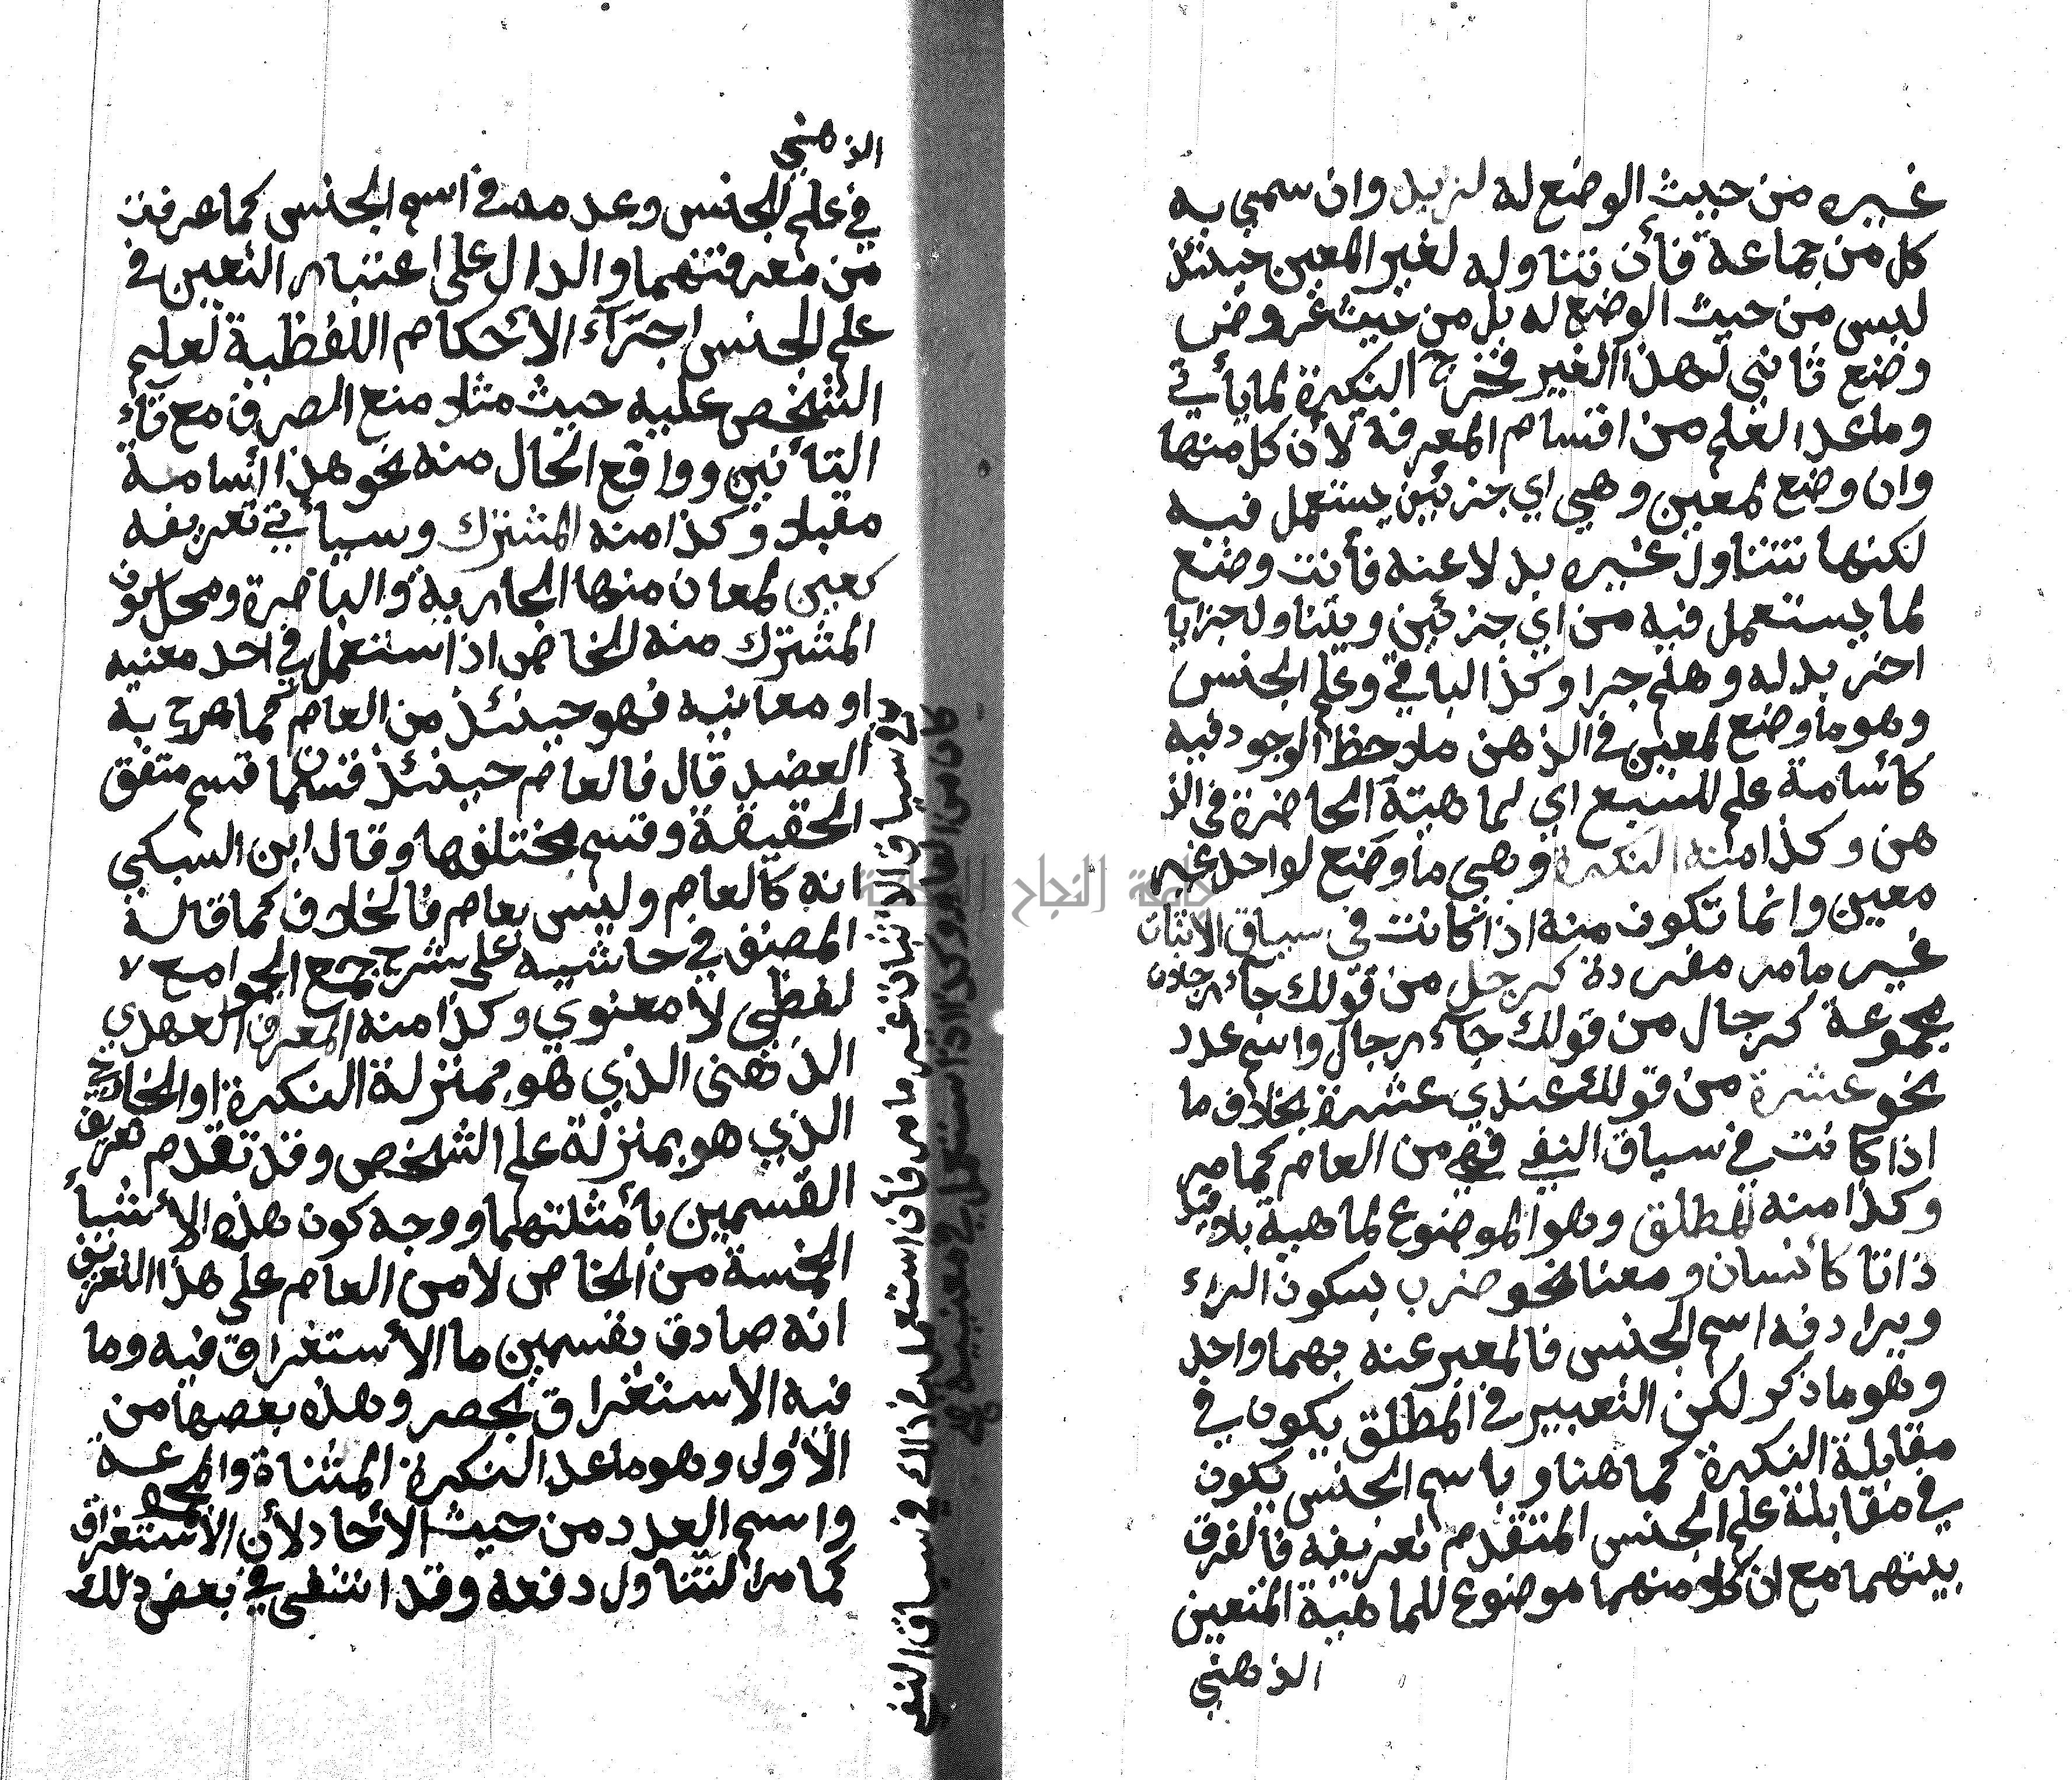 غيره من حيث الوضع له لزيد وان سمي به
كل من جماعة فأن تناوله لغير المعين حينئذ
ليس من حيث الوضع له بل من حيث عروض
وضع ثاني لهذا الغير فخرج النكرة لما يأتي
وما عدا العلم من اقسام المعرفة لأن كل منها
وان وضع لمعين وهي اي جزئين يستعمل فيه
لكنها تتناول غيره بدلا عنه فأنت وضع
لما يستعمل فيه من اي جزئين ويتناول جزايا
اخر بدله وهلم جرا وكذا الباقي وعلم الجنس
وهو ما وضع لمعين في الذهن ملاحظ الوجود فيه
كأسامة علم للسبع اي لماهية الحاضرة في الذ
هن وكذا منه النكرة وهي ما وضع لواحد غير
معين وانما تكون منه اذا كانت في سياق الاثبات
غير ما مر مفردة كرجل من قولك جآء رجلان
مجموعة كرجال من قولك جآء رجال واسم عدد
نحو عشرة من قولك عندي عشرة بخلاف ما
اذا كانت في سياق النفي فهي من العام كما مر
وكذا منه المطلق وهو الموضوع لماهية بلا قيد
ذاتا كأنسان و معنا نحو ضرب بسكون الراء
ويرادفه اسم الجنس فالمعبر عنه بهما واحد
وهو ما ذكر لكن التعبير في المطلق يكون في
مقابلة النكرة كما هنا و باسم الجنس يكون
في مقابلة علم الجنس المتقدم تعريفه فالفرق
بينهما مع ان كلا منهما موضوع للماهية المتعين
الذهني
الذهني
في علم الجنس وعدمه في اسم الجنس كما عرفت
من معرفتهما والدال على اعتبار التعين في
علم الجنس اجرآء الأحكام اللفظية لعلم
الشخص عليه حيث مثلا منع الصرف مع تآء
التأنين وواقع الحال منه نحو هذا أسامة
مقبلا وكذا منه المشترك وسيأتي تعريفه
كعين لمعان منها الجارية والباصرة ومحل كون
المشترك منه الخاص اذا ستعمل في احد معنيه
او معانيه فهو حينئذ من العام كما صرح به
العضد قال فالعام حينئذ قسمان قسم متفق
الحقيقة وقسم مختلفها وقال ابن السبكي
انه كالعام وليس بعام فالخلاف كما قالة
المصنف في حاشيه على شرح جمع الجوامع
لفظي لأ معنوي وكذا منه المعرف العهدي
الذهنى الذي هو بمنزلة النكرة او الخارجي
الذي هو بمنزلة علم الشخص وقد تقدم تعريف
القسمين بأمثلتهما ووجه كون هذه الأشيأ
الخمسة من الخاص لا من العام على هذا التعريف
انه صادق بقسمين ما الأستغراق فيه وما
فيه الاستغراق بحصر وهذه بعضها من
الأولى وهو ما عدا النكرة المثناة والمجموعة
واسم العدد من حيث الأحاد لأن الأستغراق
كما مر التناول دفعة وقد انتفى في بعض ذلك
في سياق الاثبات غير ما مر فأن استعمل ذلك في سياق النفي
كان من العام وكذا اذا استعمل في معنييه